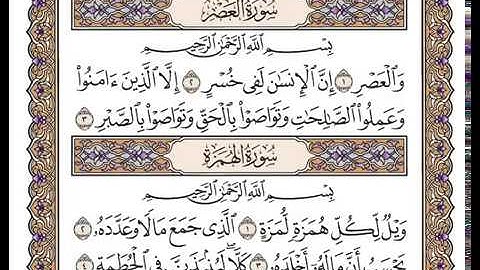 سُورَةُ الْعَصْرِ
بِسْمِ ٱللَّهِ ٱلرَّحْمَٰنِ ٱلرَّحِيمِ
وَٱلْعَصْرِ ١ إِنَّ ٱلْإِنسَٰنَ لَفِى خُسْرٍ ٢ إِلَّا ٱلَّذِينَ ءَامَنُوا۟
وَعَمِلُوا۟ ٱلصَّٰلِحَٰتِ وَتَوَاصَوْا۟ بِٱلْحَقِّ وَتَوَاصَوْا۟ بِٱلصَّبْرِ ٣
سُورَةُ الْهُمَزَةِ
بِسْمِ ٱللَّهِ ٱلرَّحْمَٰنِ ٱلرَّحِيمِ
وَيْلٌ لِّكُلِّ هُمَزَةٍ لُّمَزَةٍ ١ ٱلَّذِى جَمَعَ مَالًا وَعَدَّدَهُۥ ٢
يَحْسَبُ أَنَّ مَالَهُۥٓ أَخْلَدَهُۥ ٣ كَلَّا ۖ لَيُنۢبَذَنَّ فِى ٱلْحُطَمَةِ ٤